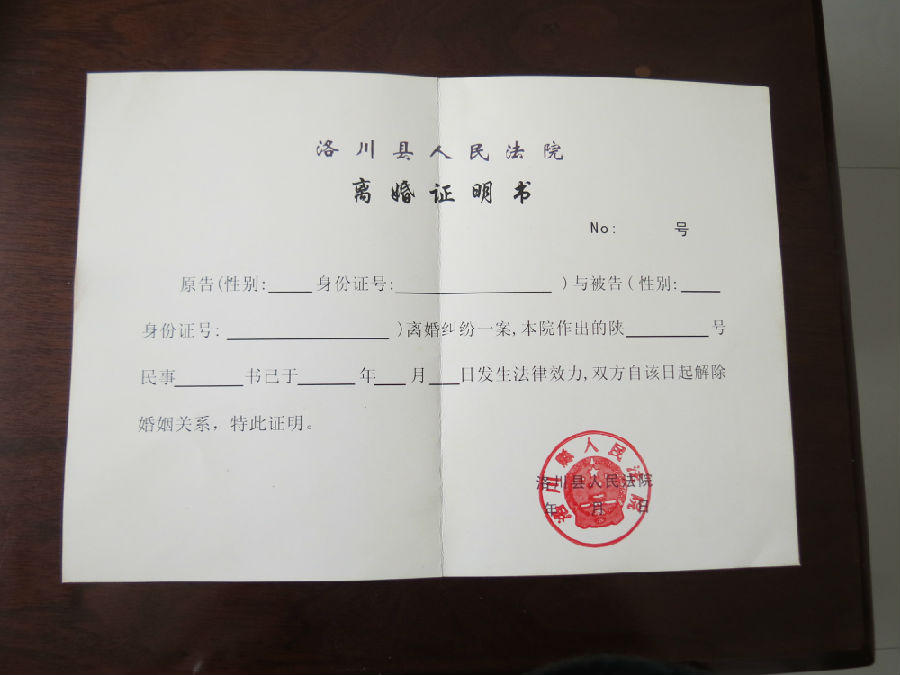 洛川县人民法院
离婚证明书
No: 号
原告(性别:____身份证号:______________)与被告(性别:____
身份证号:______________)离婚纠纷一案,本院作出的陕________号
民事______书已于_____年___月___日发生法律效力,双方自该日起解除
婚姻关系，特此证明。
洛川县人民法院
洛川县人民法院
年 月 日